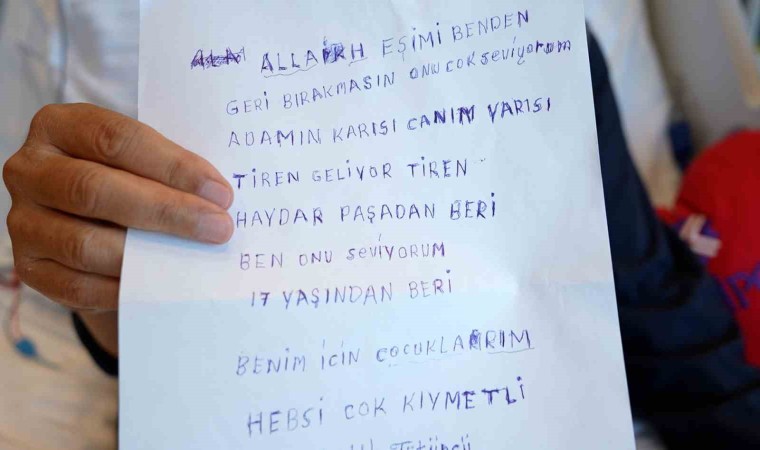 ALLAHH EŞİMİ BENDEN
GERİ BIRAKMASIN ONU COK seviyorum
ADAMIN KARISI CANIM YARISI
TİREN GELİYOR TİREN
HAYDAR PAŞADAN BERİ
BEN ONU seviYORUM
17 YAŞINDAN BERİ
BENİM İCİN ÇOCUKLARIM
HEBSİ COK KIYMETLİ